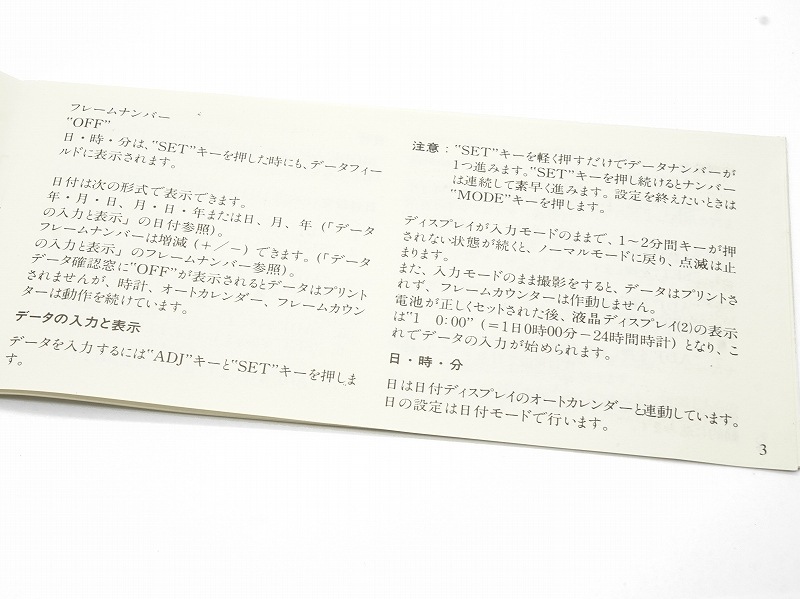 フレームナンバー
"OFF"
日・時・分は、"SET"キーを押した時にも、データフィー
ルドに表示されます。
日付は次の形式で表示できます。
年・月・日、月・日・年または日、月、年（「データ
の入力と表示」の日付参照）。
フレームナンバーは増減（＋／－）できます。（「データ
の入力と表示」のフレームナンバー参照）。
データ確認窓に"OFF"が表示されるとデータはプリント
されませんが、時計、オートカレンダー、フレームカウン
ターは動作を続けています。
データの入力と表示
データを入力するには"ADJ"キーと"SET"キーを押しま
す。
注意："SET"キーを軽く押すだけでデータナンバーが
1つ進みます。"SET"キーを押し続けるとナンバー
は連続して素早く進みます。設定を終えたいときは
"MODE"キーを押します。
ディスプレイが入力モードのままで、1～2分間キーが押
されない状態が続くと、ノーマルモードに戻り、点滅は止
まります。
また、入力モードのまま撮影をすると、データはプリントさ
れず、フレームカウンターは作動しません。
電池が正しくセットされた後、液晶ディスプレイ(2)の表示
は"1 0:00"（＝1日0時00分－24時間時計）となり、こ
れでデータの入力が始められます。
日・時・分
日は日付ディスプレイのオートカレンダーと連動しています。
日の設定は日付モードで行います。
3